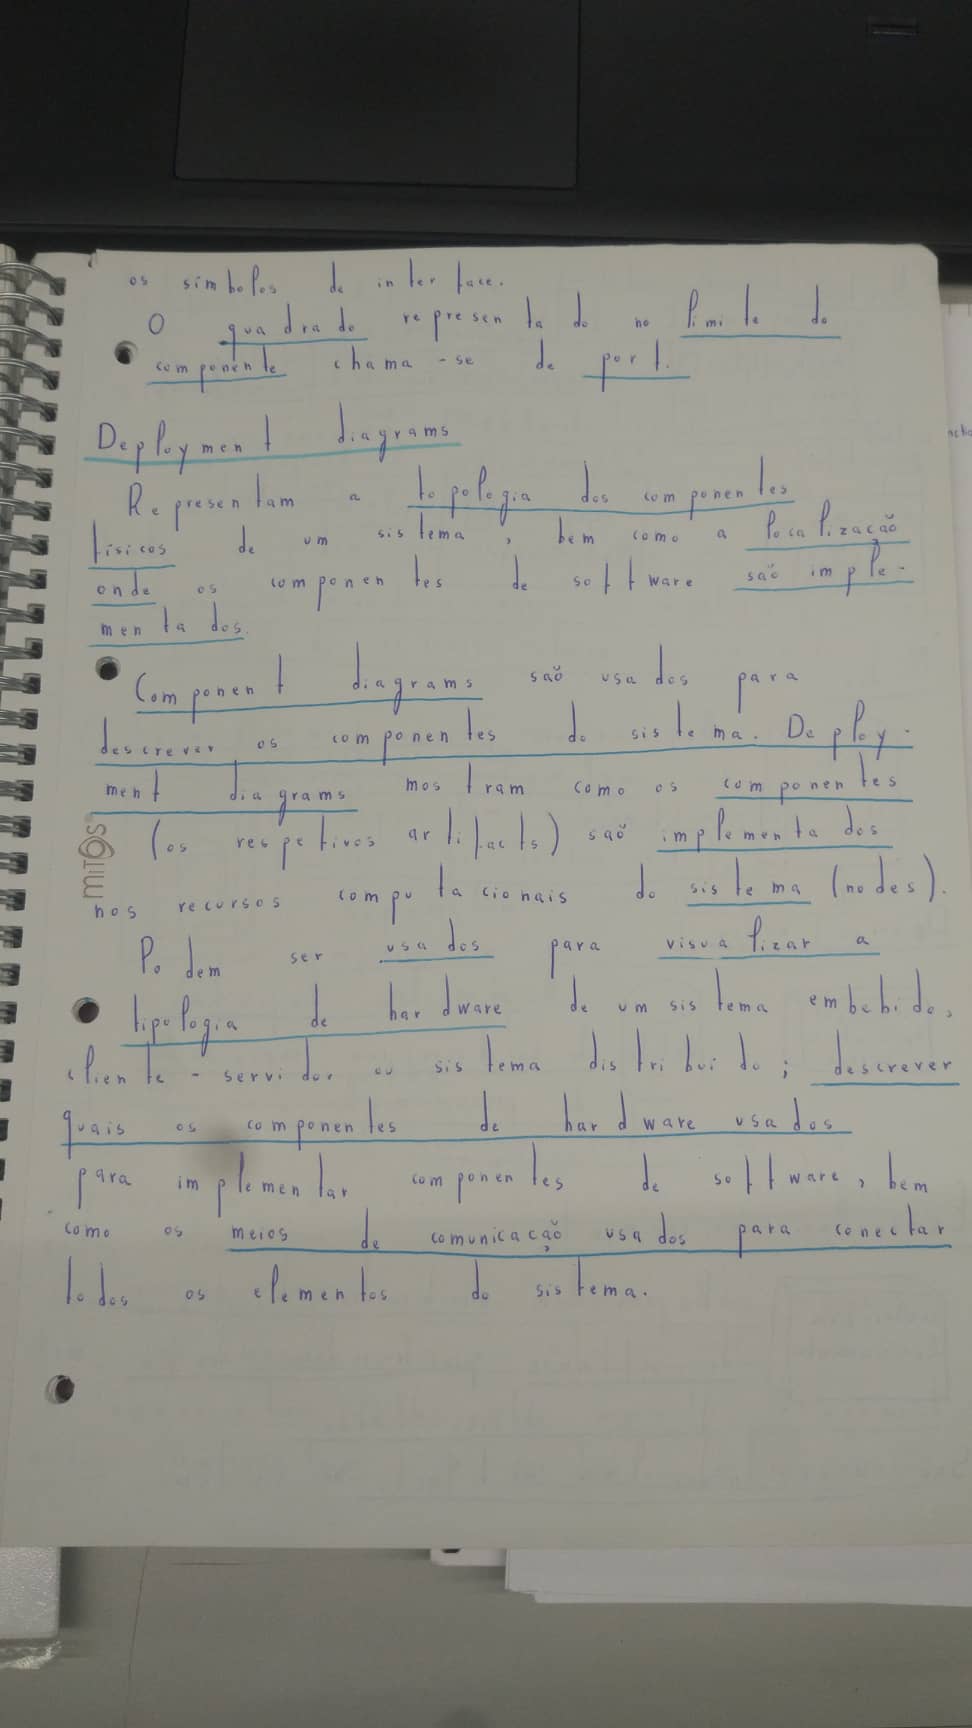 os símbolos de interface.
O quadrado representado no limite do
componente chama-se de port.
Deployment diagrams
Representam a topologia dos componentes
físicos de um sistema, bem como a localização
onde os componentes de software são imple-
mentados.
Component diagrams são usados para
descrever os componentes do sistema. Deploy-
ment diagrams mostram como os componentes
(os respetivos artifacts) são implementados
nos recursos computacionais do sistema (nodes).
Podem ser usados para visualizar a
tipologia de hardware de um sistema embebido,
cliente-servidor ou sistema distribuido; descrever
quais os componentes de hardware usados
para implementar componentes de software, bem
como os meios de comunicação usados para conectar
todos os elementos do sistema.
MITOS